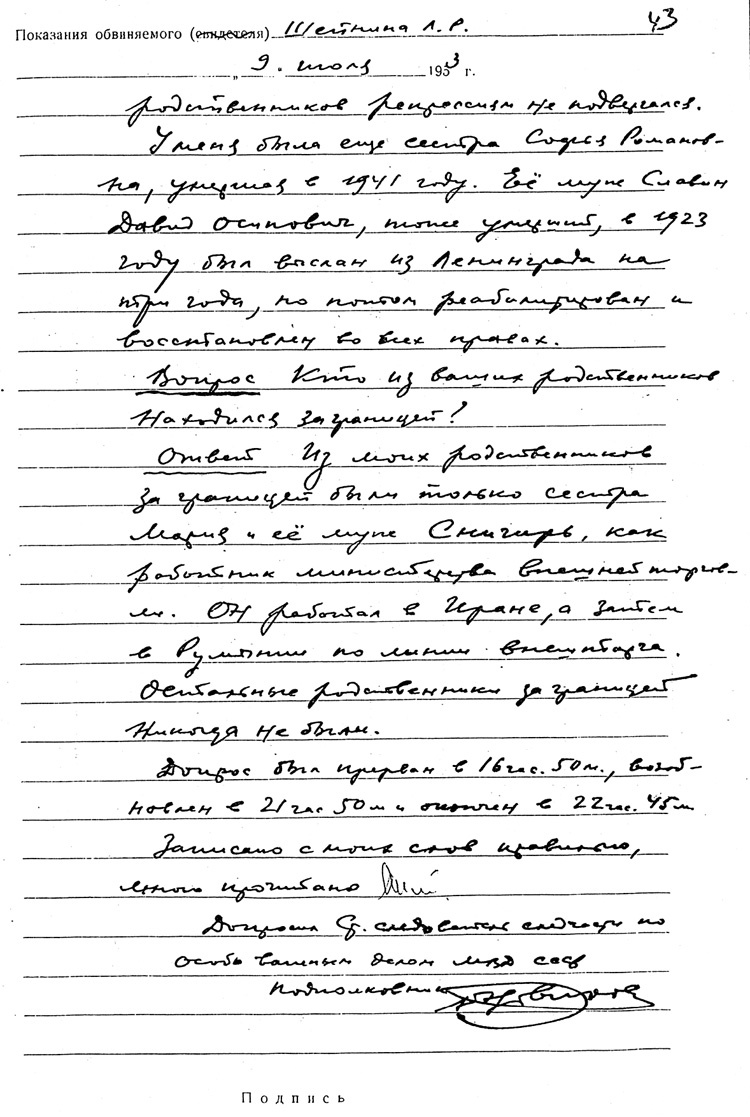 43
Показания обвиняемого (свидетеля) Шейнина Л.Р.
„ 9. июля 1953 г.
родственников репрессиям не подвергался.
У меня была еще сестра Софья Романов-
на, умершая в 1941 году. Её муж Славин
Давид Осипович, тоже умерший, в 1923
году был выслан из Ленинграда на
три года, но потом реабилитирован и
восстановлен во всех правах.
Вопрос Кто из ваших родственников
находился за границей?
Ответ Из моих родственников
за границей были только сестра
Мария и её муж Снигирь, как
работник министерства внешней торгов-
ли. Он работал в Иране, а затем
в Румынии по линии внешторга.
Остальные родственники за границей
никогда не были.
Допрос был прерван в 16 час. 50 м., возоб-
новлен в 21 час 50 м и окончен в 22 час. 45 м
Записано с моих слов правильно,
мною прочитано
Допросил Ст. следователь следчасти по
особо важным делам МВД СССР
подполковник
Подпись